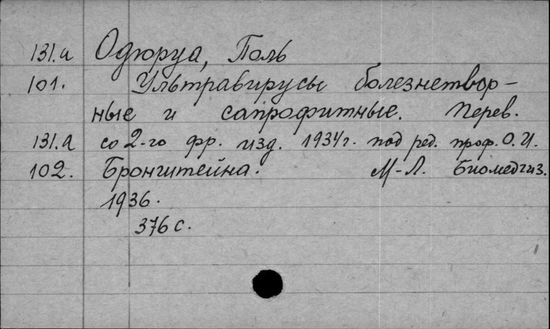 131.а Одюруа, Поль
101. Ультравирусы болезнетвор-
ные и сапрофитные. Перев.
131.а со 2-го фр. изд. 1934г. под ред. проф. О. И.
102. Бронштейна. М-Л. Биомедгиз.
1936.
376 с.